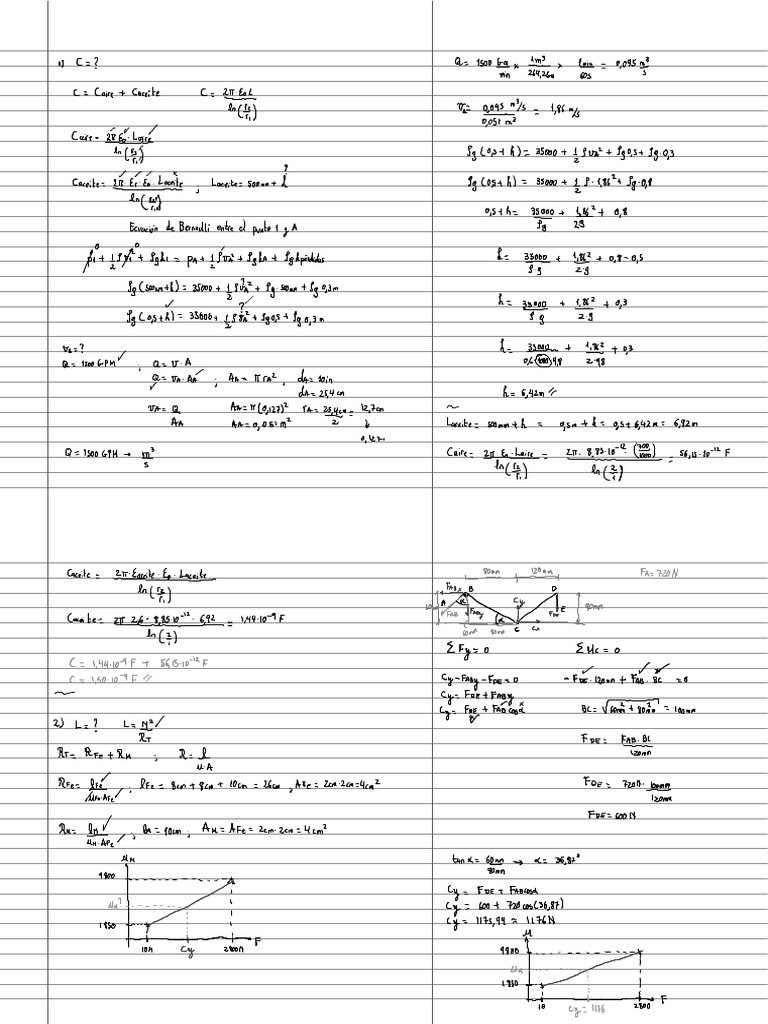 1) C = ?
C = Caire + Caceite C = 2π·ε0·L / ln(r2/r1)
Caire = 2π·ε0·Laire / ln(r2/r1)
Caceite = 2π·εr·ε0·Laceite / ln(r2/r1) , Laceite = 500mm + h ?
Ecuación de Bernoulli entre el punto 1 y A
p1 + 1/2 ρ v1² + ρgh1 = pA + 1/2 ρ vA² + ρg hA + ρg hpérdidas
ρg(500mm+h) = 35000 + 1/2 ρ vA² + ρg·500mm + ρg 0,3m
ρg(0,5+h) = 35000 + 1/2 ρ vA² + ρg 0,5 + ρg 0,3m
vA = ?
Q = 1500 GPM ; Q = v·A
Q = vA·AA ; AA = π rA² , dA = 10in
dA = 25,4cm
vA = Q / AA AA = π(0,127)² rA = 25,4cm / 2 = 12,7cm
AA = 0,051m² 0,127m
Q = 1500 GPM → m³/s
Q = 1500 Gal/min × 1m³/264,2Gal × 1min/60s = 0,095 m³/s
vA = 0,095 m³/s / 0,051 m² = 1,86 m/s
ρg(0,5+h) = 35000 + 1/2 ρ vA² + ρg 0,5 + ρg·0,3
ρg(0,5+h) = 35000 + 1/2 ρ·1,86² + ρg·0,8
0,5+h = 35000/ρg + 1,86²/2g + 0,8
h = 35000/ρ·g + 1,86²/2·g + 0,8 - 0,5
h = 35000/ρ·g + 1,86²/2·g + 0,3
h = 35000/0,6(1000)9,8 + 1,86²/2·9,8 + 0,3
h = 6,42m //
Laceite = 500mm + h = 0,5m + h = 0,5 + 6,42m = 6,92m
Caire = 2π·ε0·Laire / ln(r2/r1) = 2π·8,85·10⁻¹²·(700/1000) / ln(2/1) = 56,15·10⁻¹² F
Caceite = 2π·εaceite·ε0·Laceite / ln(r2/r1)
Caceite = 2π·2,6·8,85·10⁻¹²·6,92 / ln(2/1) = 1,44·10⁻⁹ F
C = 1,44·10⁻⁹ F + 56,15·10⁻¹² F
C = 1,50·10⁻⁹ F //
2) L = ? L = N² / RT
RT = RFe + RM ; R = l / μ·A
RFe = lFe / μFe·AFe ; lFe = 8cm + 8cm + 10cm = 26cm , AFe = 2cm·2cm = 4cm²
RM = lM / μM·AFe ; lM = 10cm , AM = AFe = 2cm·2cm = 4cm²
μM
4800
μM?
1850
10N Cy 2800N F
80mm 120mm FA = 720N
FABx B D
A FAB α FABy Cy FDE E
60mm 80mm α C Cx
ΣFy = 0 ΣMc = 0
Cy - FABy - FDE = 0 -FDE·120mm + FAB·BC = 0
Cy = FDE + FABy
Cy = FDE + FAB cosα BC = √(60mm² + 80mm²) = 100mm
FDE = FAB·BC / 120mm
FDE = 720N·100mm / 120mm
FDE = 600N
tanα = 60mm/80mm → α = 36,87°
Cy = FDE + FAB cosα
Cy = 600 + 720 cos(36,87)
Cy = 1175,99 ≈ 1176N
μ
4800
μM
1850
10 Cy = 1176 2800 F